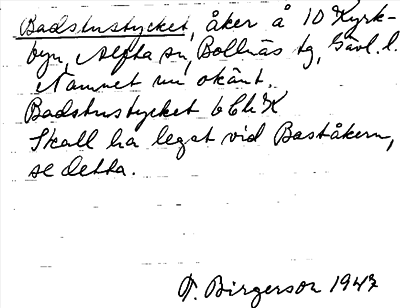 Badstustycket, åker å 10 Kyrk-
byn, Alfta sn, Bollnäs tg, Gävl. l.
Namnet nu okänt.
Badstustycket 6 Chk
Skall ha legat vid Baståkern,
se detta.
T. Birgerson 1947